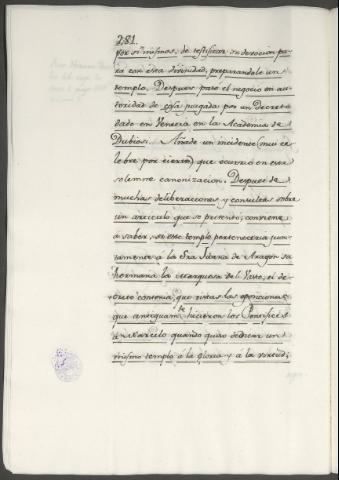 281.
por si mismas, de testificar su devocion pa-
ra con esta divinidad, preparandole un
templo. Despues paso el negocio en au-
toridad de cosa juzgada por un Decreto
dado en Venecia en la Academia de
Dubiosi. Añade un incidente (muy ce-
lebre por cierto) que ocurrió en esta
solemne canonizacion. Despues de
muchas deliberaciones y consultas sobre
un articulo que se pretendió, conviene
a saber, si este templo perteneceria jun-
tamente a la Sra. Juana de Aragon su
hermana la Marquesa del Vasto, el de-
creto contenia, que vistas las oposiciones
que antiguamte hicieron los Pontifices
a Marcelo quando quiso dedicar un
mismo templo á la gloria y á la virtud,